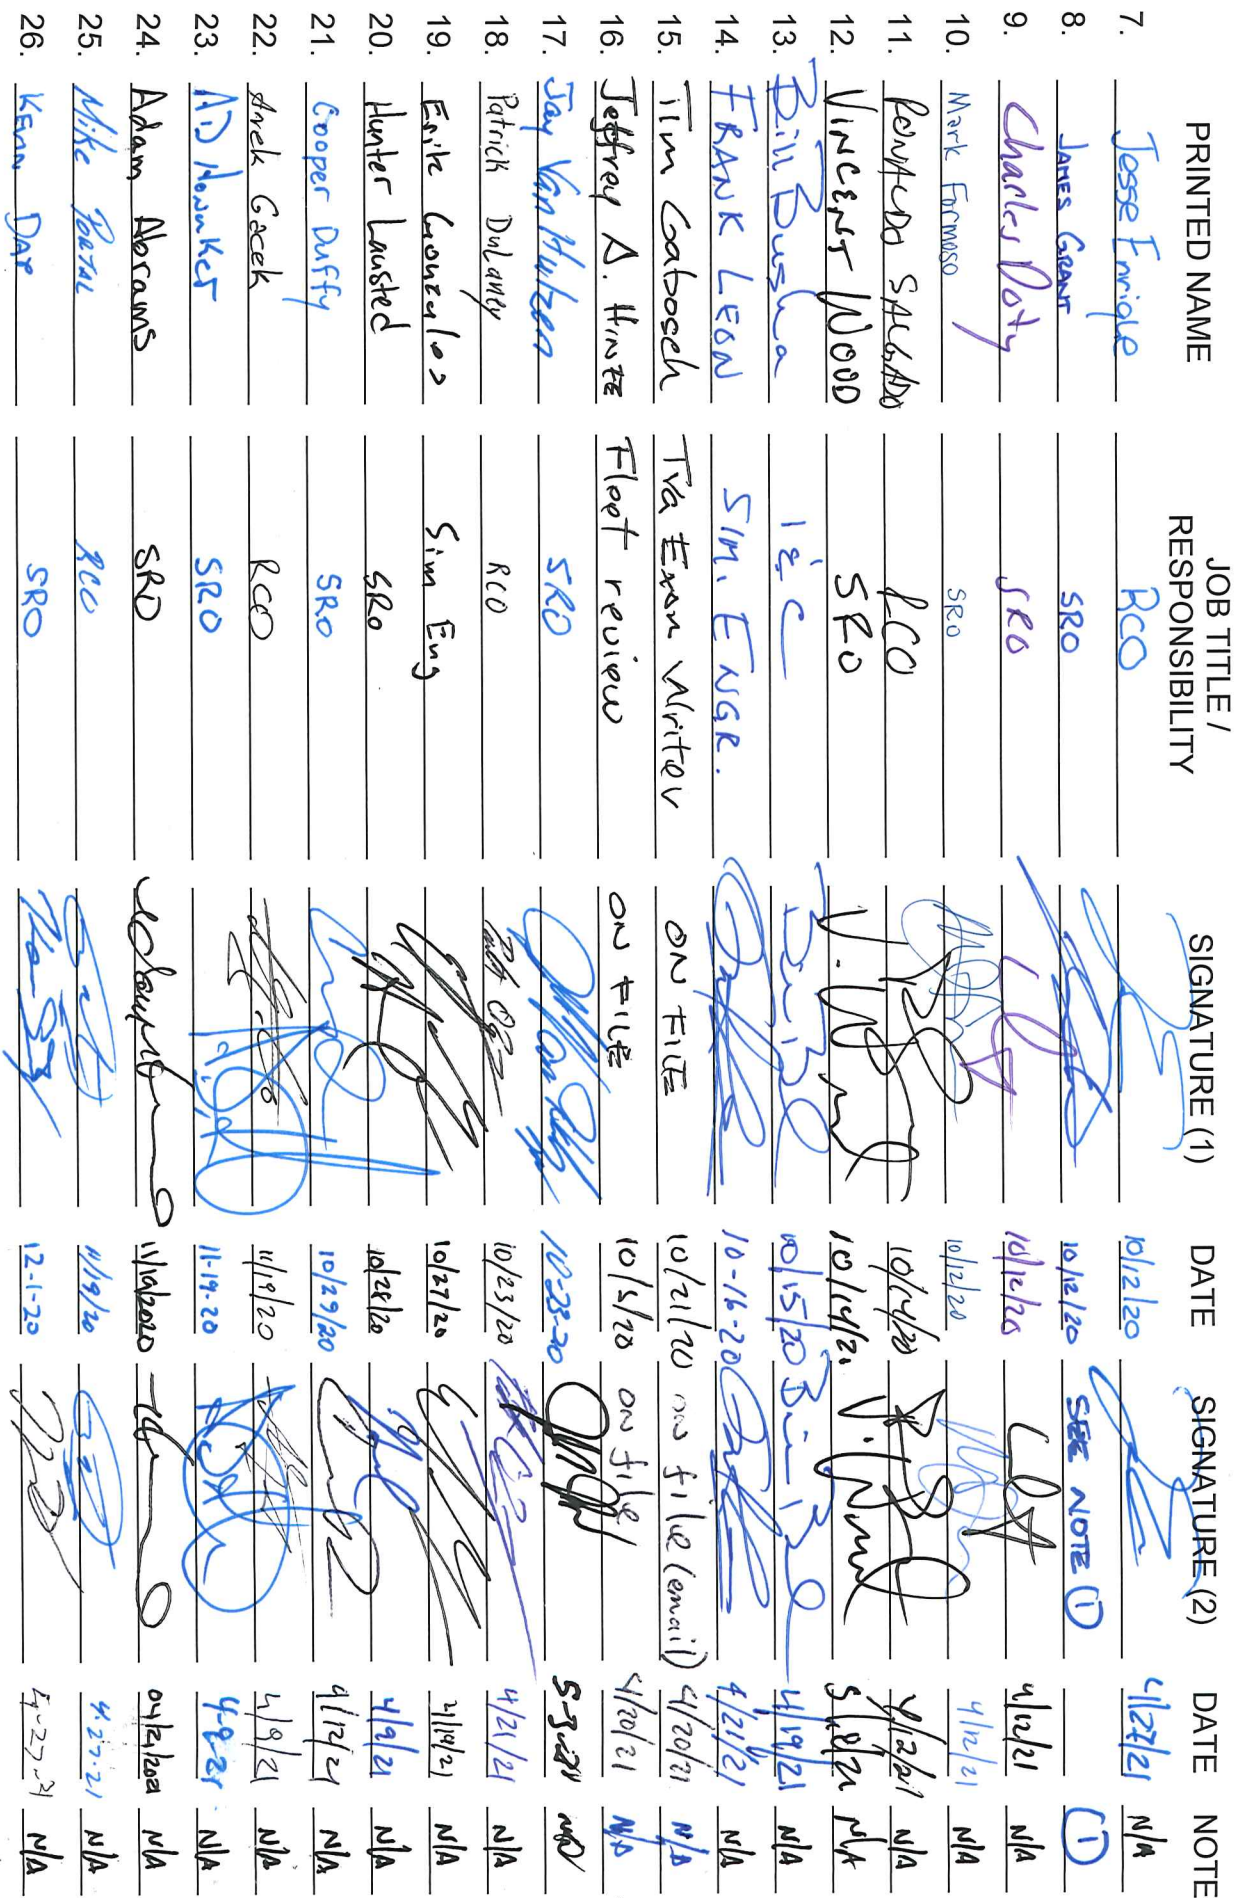 PRINTED NAME JOB TITLE / RESPONSIBILITY SIGNATURE (1) DATE SIGNATURE (2) DATE NOTE
7. Jesse Enrique RCO 10/12/20 4/27/21 N/A
8. JAMES GRANT SRO 10/12/20 SEE NOTE (1) (1)
9. Charles Doty SRO 10/12/20 4/12/21 N/A
10. Mark Formoso SRO 10/12/20 4/12/21 N/A
11. RONALDO SALGADO RCO 10/14/20 4/12/21 N/A
12. VINCENT WOOD SRO V. Wood 10/14/20 V. Wood N/A
13. Bill Busha I&C 10/15/20 4/19/21 N/A
14. FRANK LEON SIM. ENGR. 10-16-20 4/21/21 N/A
15. Tim Gabosch Tva Exam Writer ON FILE 10/21/20 on file (email) 4/20/21 N/A
16. Jeffrey A. HINZE Fleet review ON FILE 10/5/20 ON file 4/20/21 N/A
17. Jay Van Hulzen SRO 10-23-20
18. Patrick Dulaney RCO 10/23/20 4/21/21 N/A
19. Erik Gonzales Sim Eng 10/27/20 4/19/21 N/A
20. Hunter Lausted SRO 10/28/20 4/9/21 N/A
21. Cooper Duffy SRO 10/29/20 4/12/21 N/A
22. Arek Gacek RCO 11/19/20 4/9/21 N/A
23. SRO 11-19-20 N/A
24. Adam Abrams SRO 11/19/2020 N/A
25. Mike PORTAL RCO 11/19/20 4-27-21 N/A
26. KEVIN DAP SRO 12-1-20 4-27-21 N/A